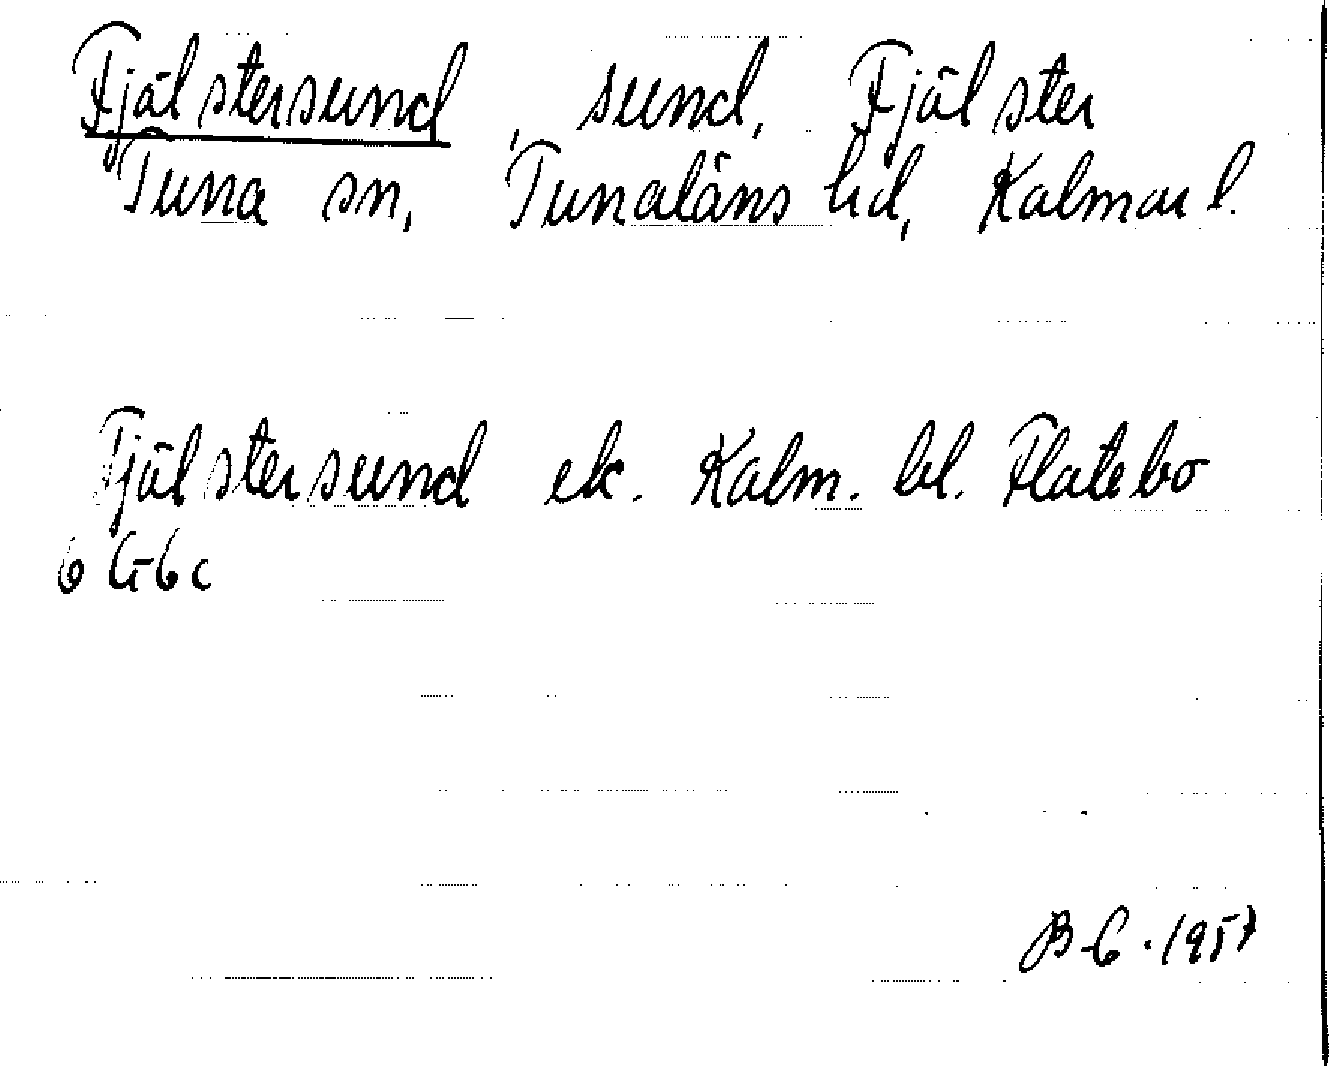 Fjälstersund, sund, Fjälster
Tuna sn, Tunaläns hd, Kalmar l.
Fjälstersund ek. Kalm. bl. Flatebo
6 G 6 c
B-G. 1957